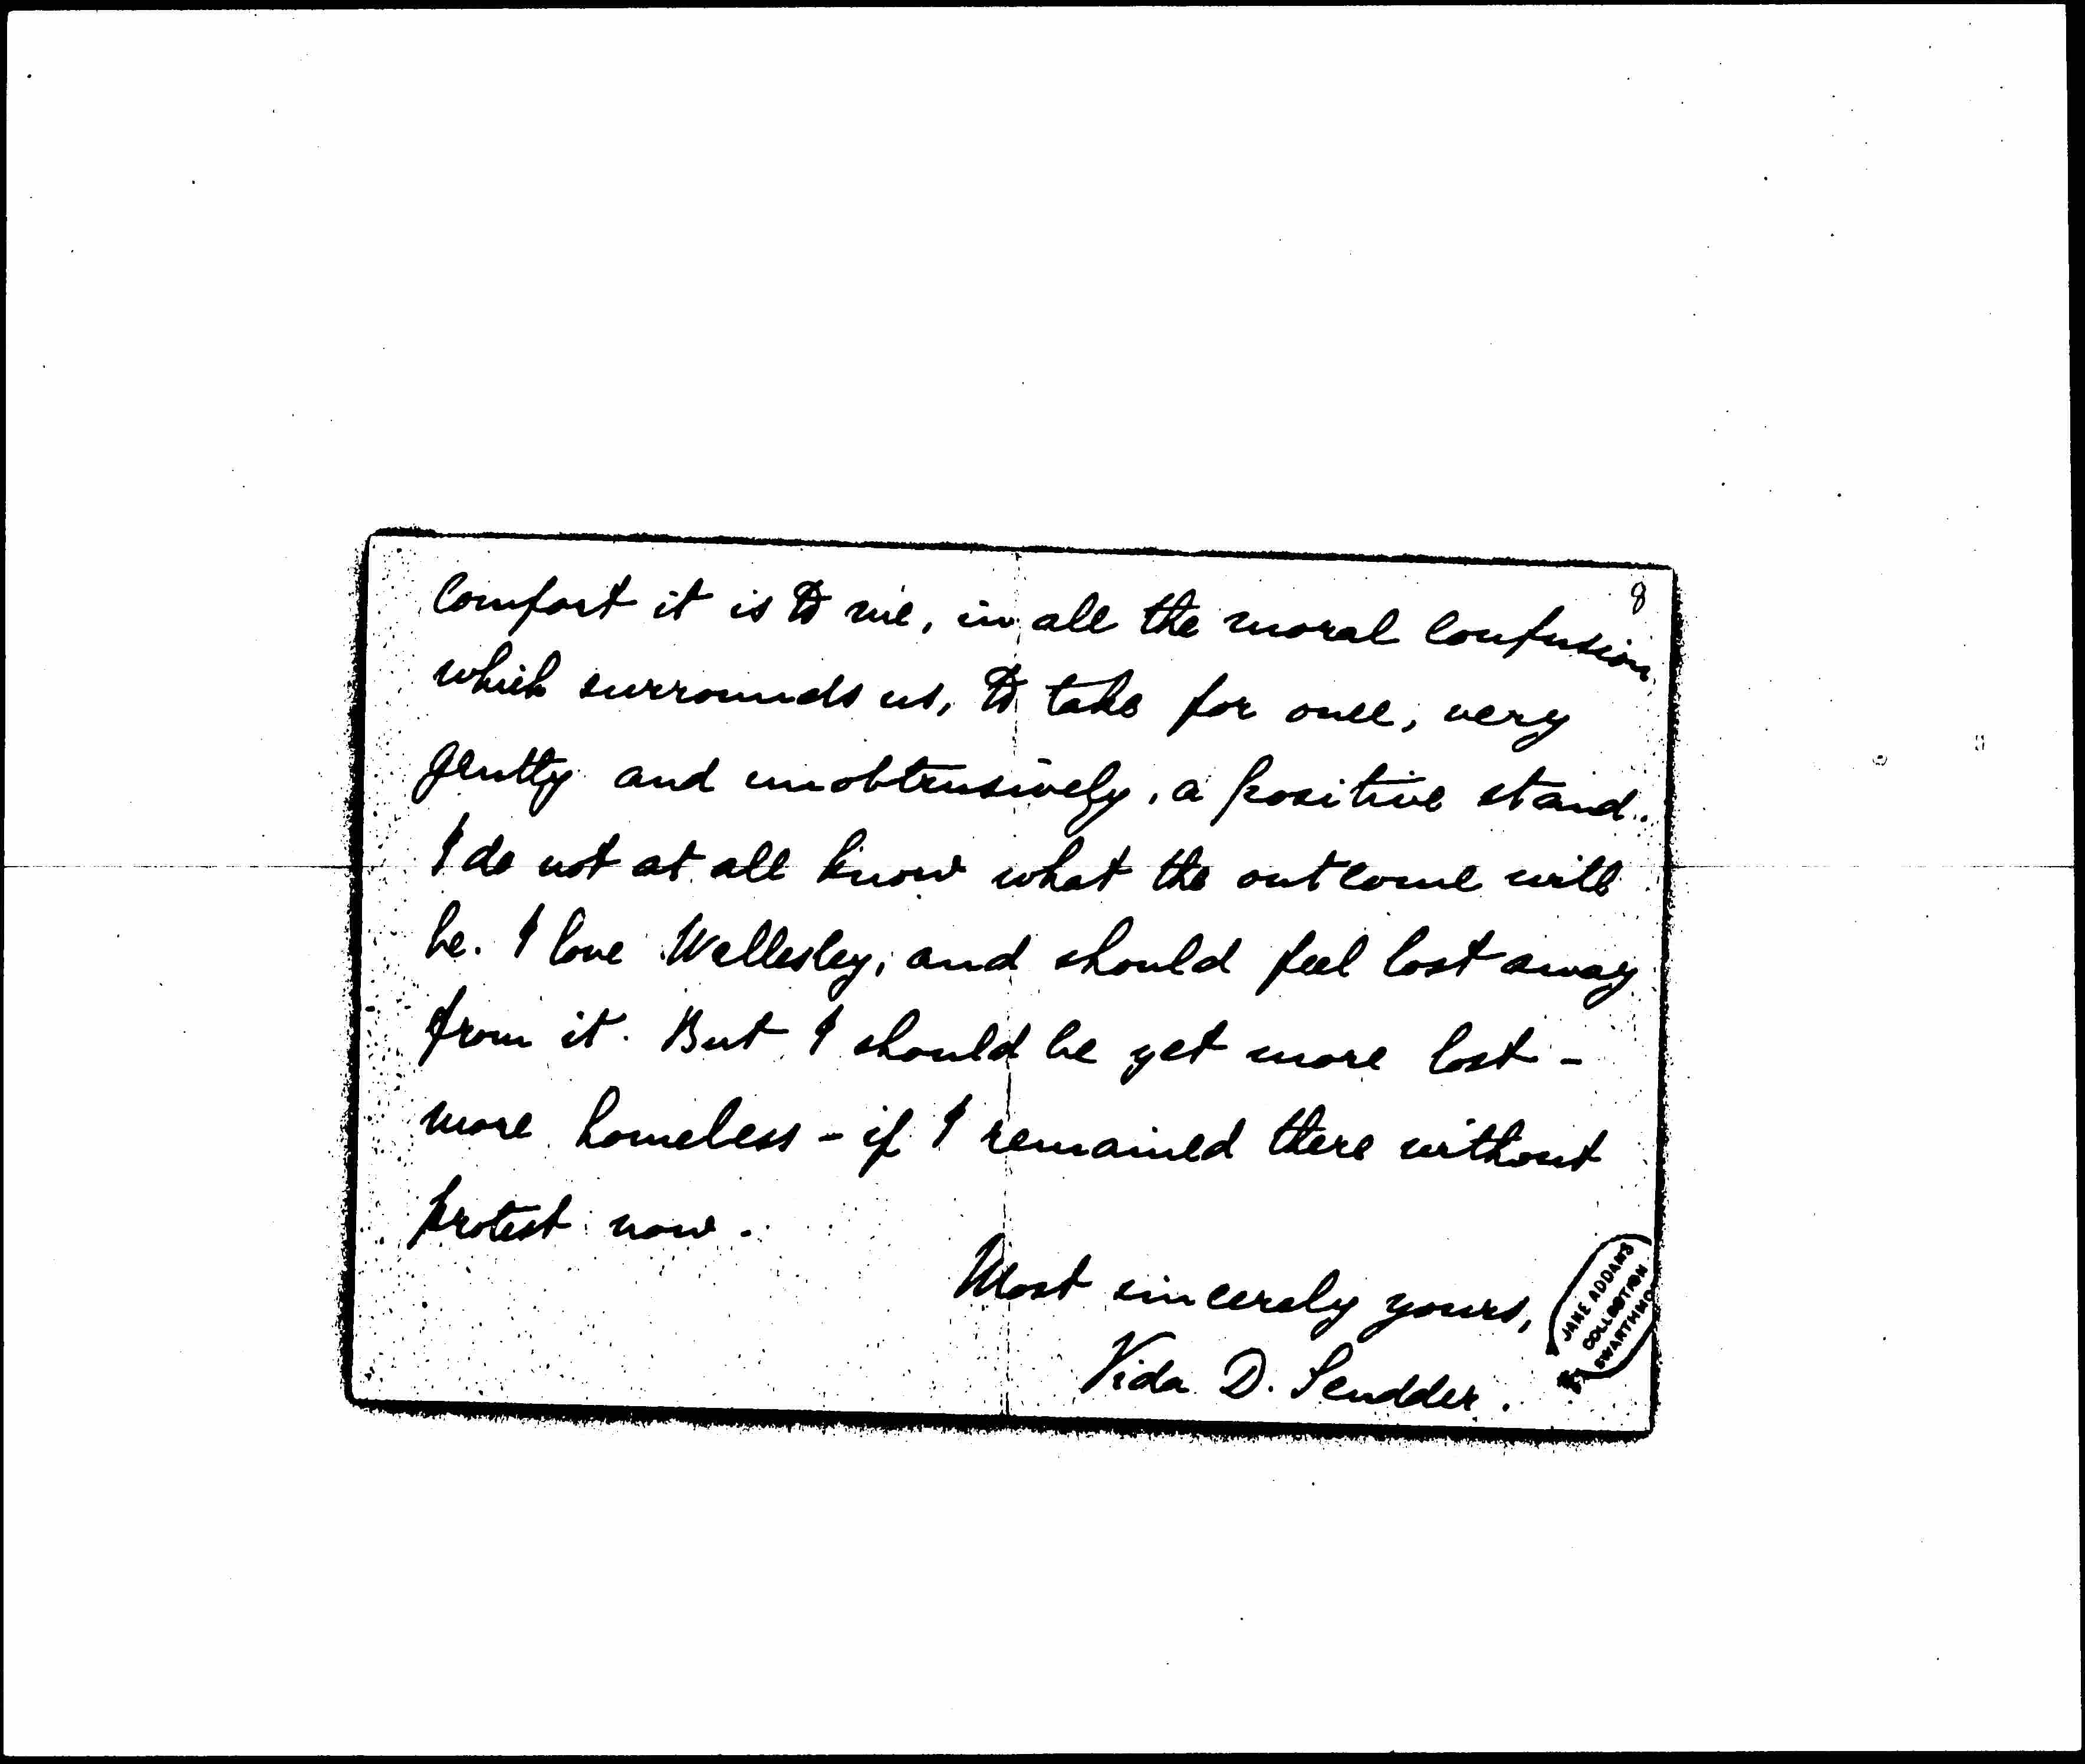 8
comfort it is to me, in all the moral confusion
which surrounds us, to take for once, very
gently and unobtrusively, a positive stand.
I do not at all know what the outcome will
be. I love Wellesley, and should feel lost away
from it. But I should be yet more lost -
more homeless - if I remained there without
protest now.
Most sincerely yours,
Vida D. Scudder.
JANE ADDAMS
COLLECTION
SWARTHMO